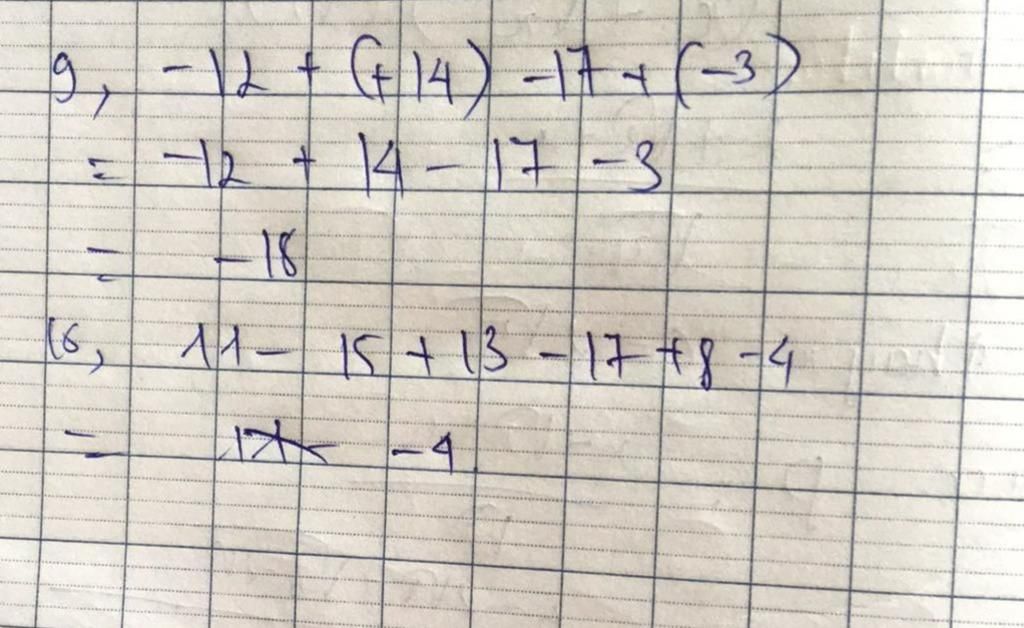 9, -12 + (+14) -17 + (-3)
= -12 + 14 - 17 - 3
= -18
16, 11 - 15 + 13 - 17 + 8 - 4
= -4